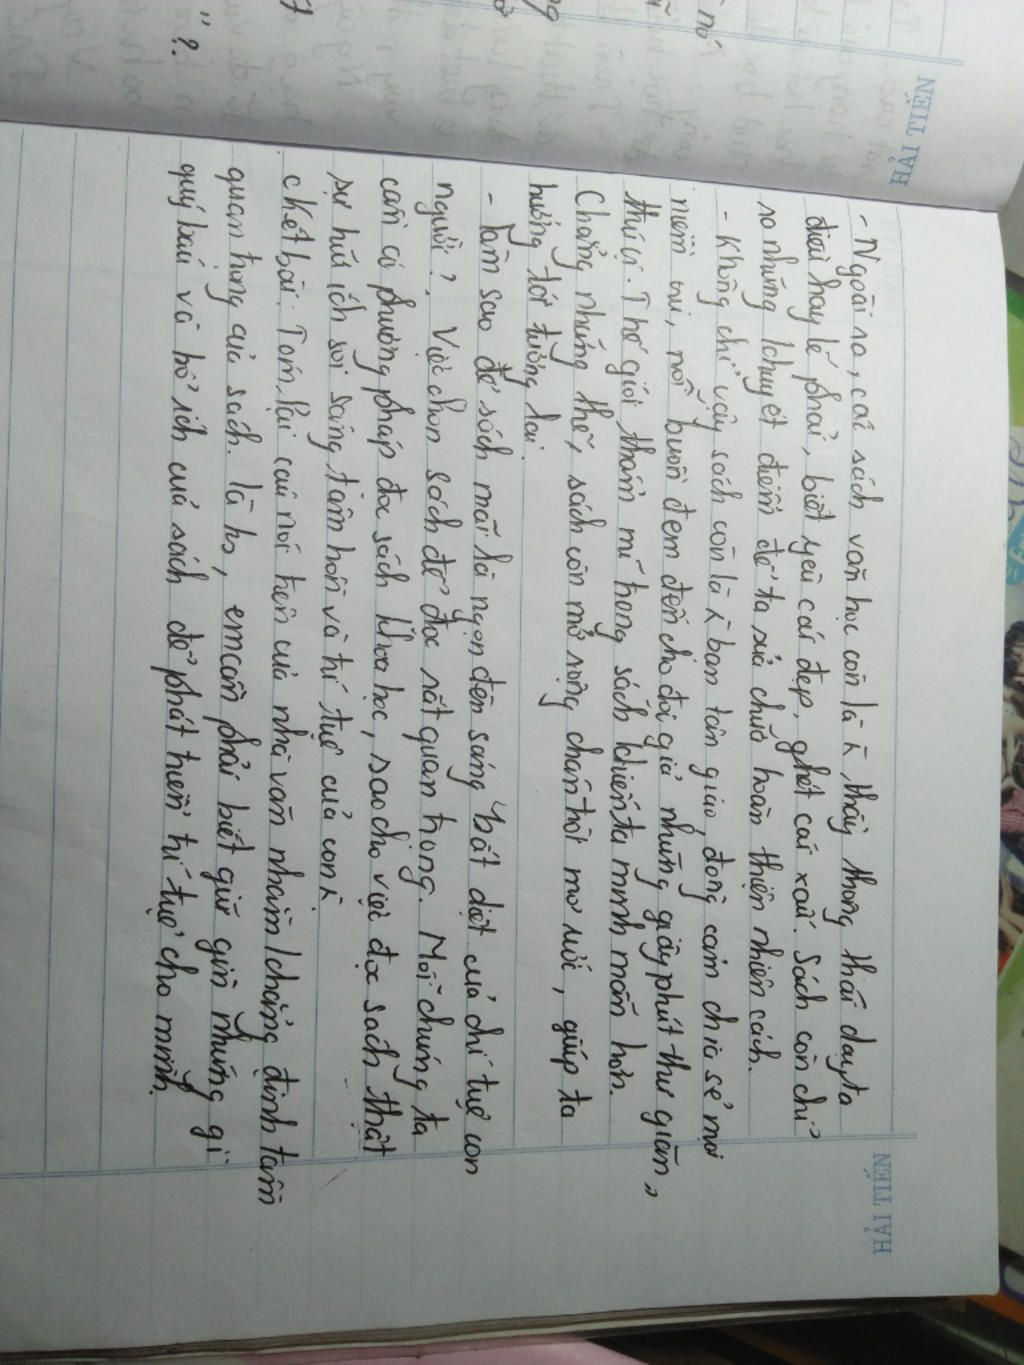 HẢI TIẾN
HẢI TIẾN
- Ngoài ra, các sách văn học còn là 1 thầy thông thái dạy ta
điều hay lẽ phải, biết yêu cái đẹp, ghét cái xấu. Sách còn chỉ
ra những khuyết điểm để ta sửa chữa hoàn thiện nhiên cách.
- Không chỉ vậy sách còn là 1 bạn tâm giao, đồng cảm chia sẻ mọi
niềm vui, nỗi buồn đem đến cho đọc giả những giây phút thư giãn,
thú vị. Thế giới thẩm mĩ trong sách khiến ta minh mẫn hơn.
Chẳng những thế, sách còn mở rộng chân trời mơ ước, giúp ta
hướng tới tương lai.
- Làm sao để sách mãi là ngọn đèn sáng bất diệt của chí tuệ con
người?. Việc chọn sách để đọc rất quan trọng. Mỗi chúng ta
cần có phương pháp đọc sách khoa học, sao cho việc đọc sách thật
sự hữu ích soi sáng tâm hồn và trí tuệ của con
c. Kết bài: Tóm lại câu nói trên của nhà văn nhằm khẳng định tầm
quan trọng của sách. là hs, em cần phải biết giữ gìn những gì
quý báu và bổ ích của sách để phát triển trí tuệ cho mình.
nó
" ?.